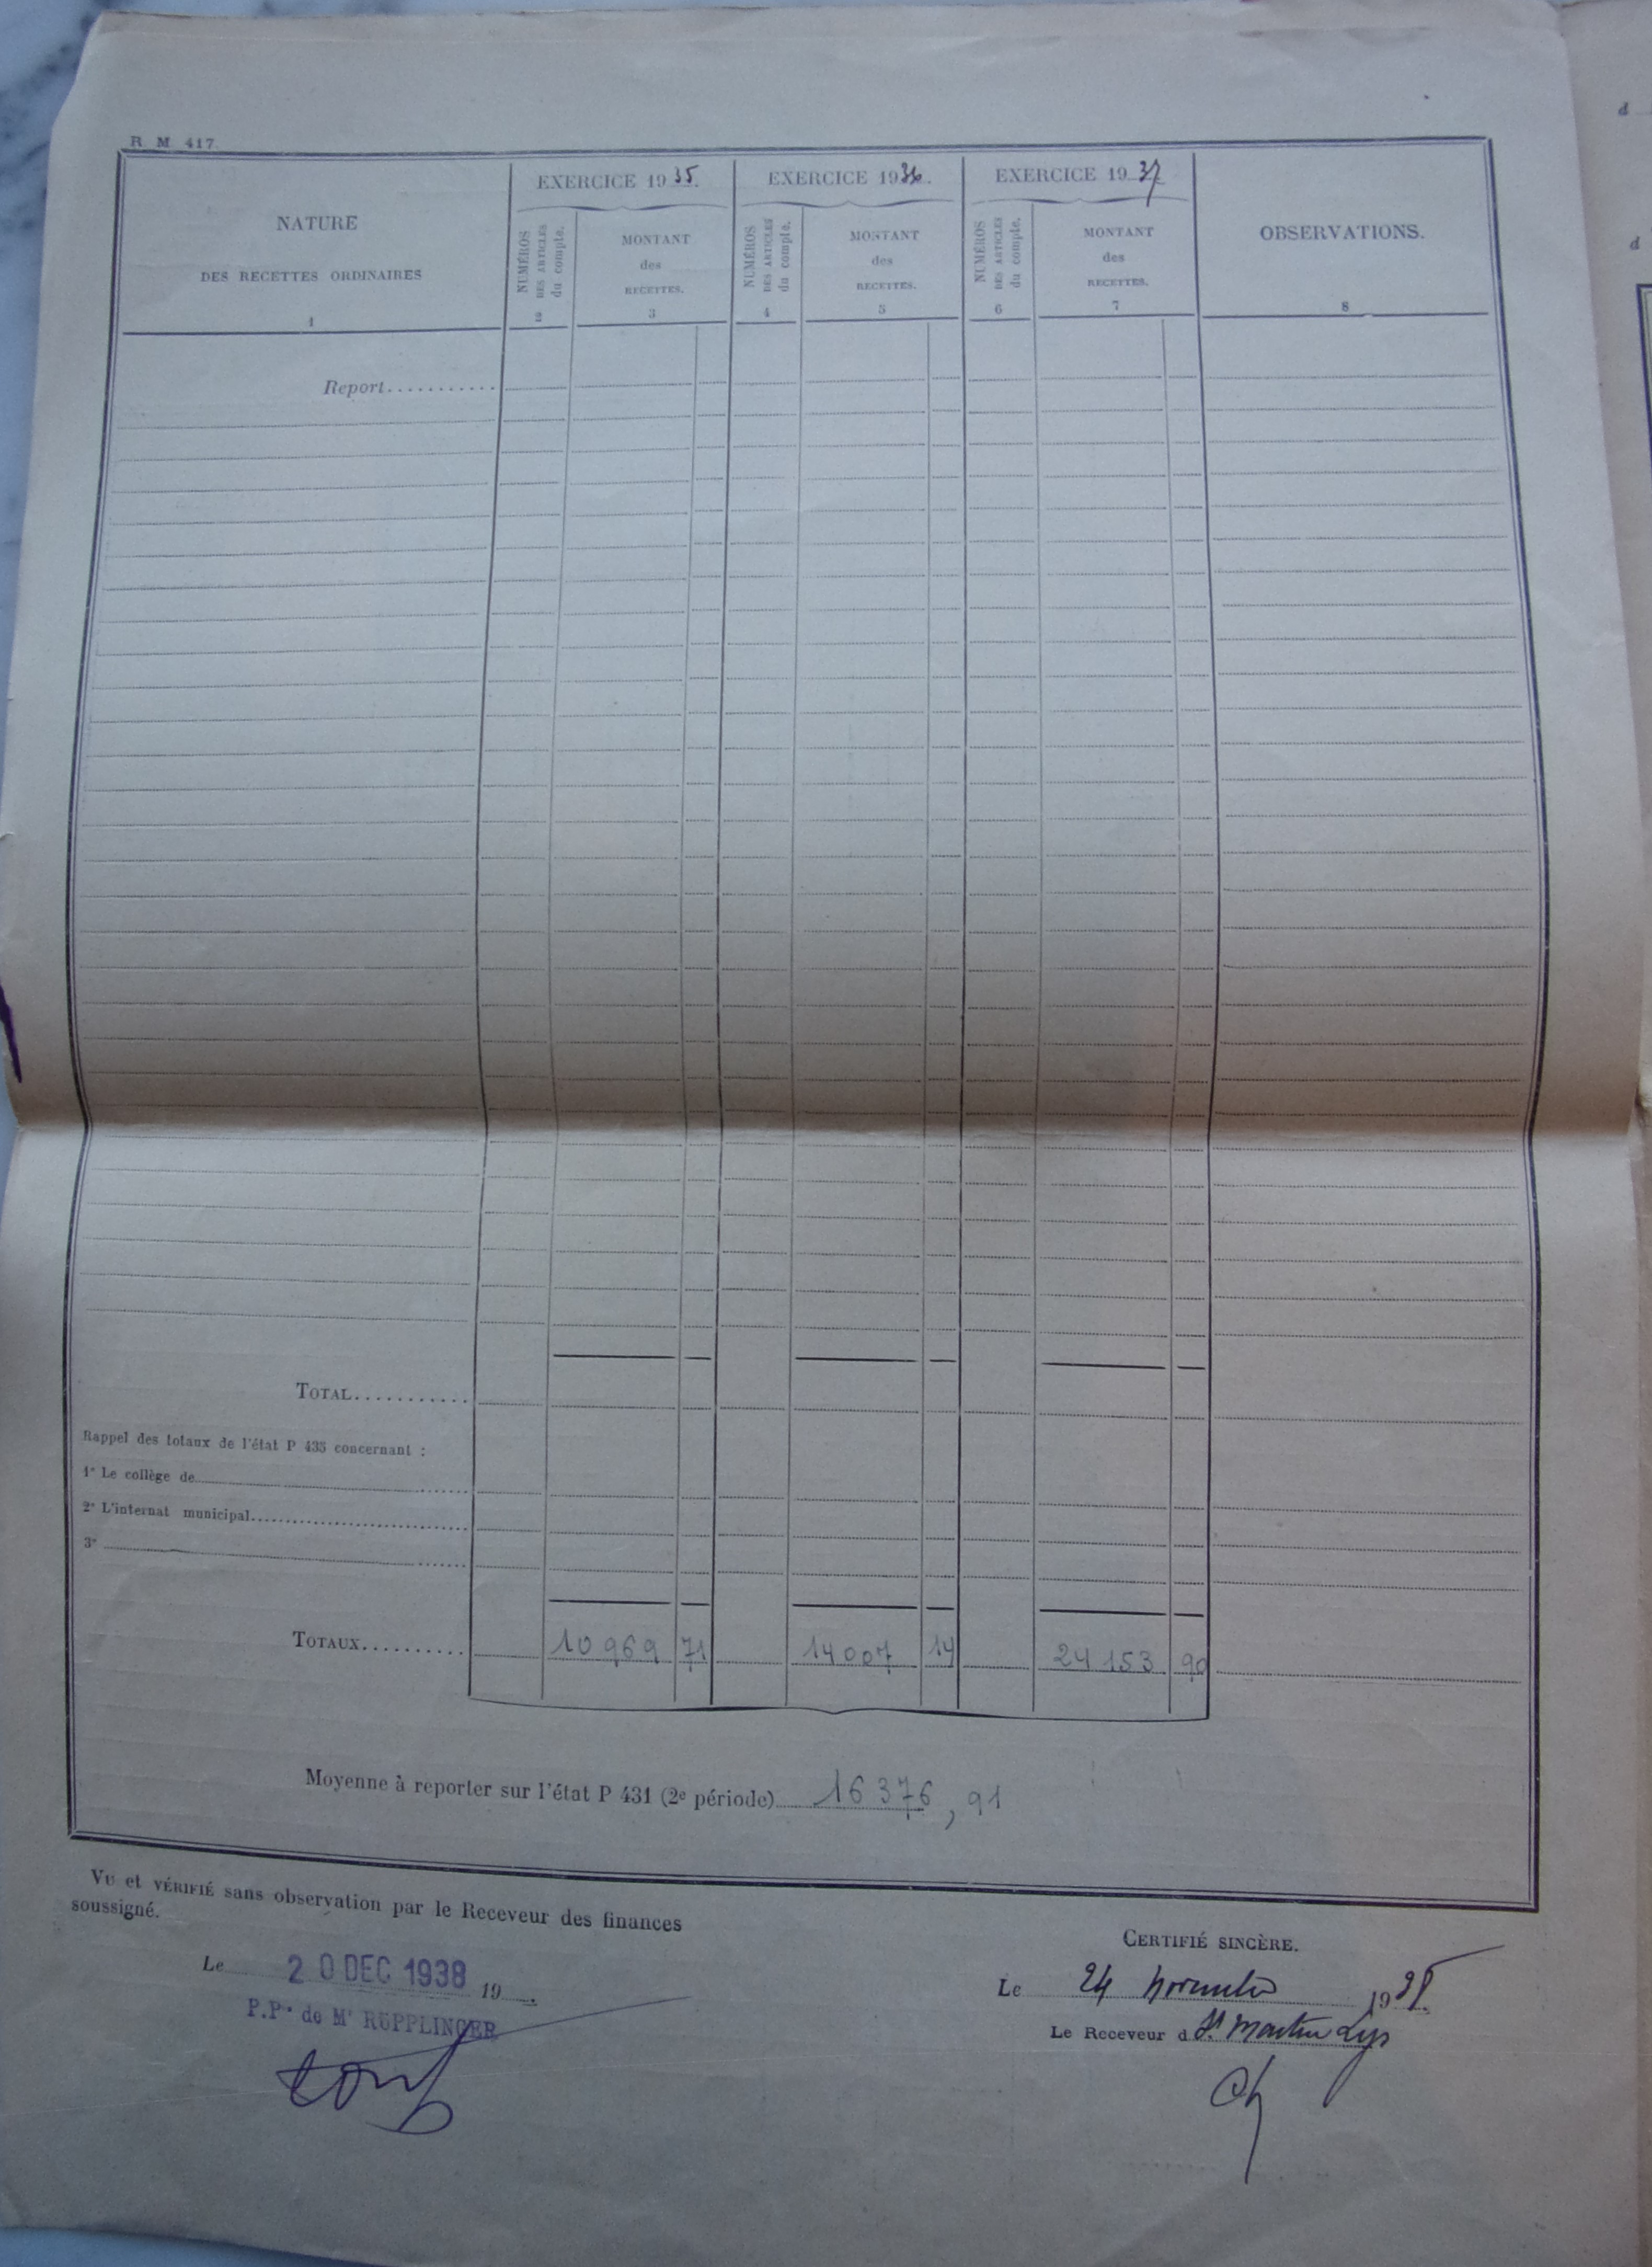 R M 417
NATURE
DES RECETTES ORDINAIRES
1
EXERCICE 1935.
NUMÉROS
DES ARTICLES
du compte.
2
MONTANT
des
RECETTES.
3
EXERCICE 1936.
NUMÉROS
DES ARTICLES
du compte.
4
MONTANT
des
RECETTES.
5
EXERCICE 1937
NUMÉROS
DES ARTICLES
du compte.
6
MONTANT
des
RECETTES.
7
OBSERVATIONS.
8
Report...........
TOTAL...........
Rappel des totaux de l'état P 435 concernant :
1° Le collège de
2° L'internat municipal
3°
TOTAUX.......... 10 969 71 14 007 14 24 153 90
Moyenne à reporter sur l'état P 431 (2e période) 16 376, 91
VU et VÉRIFIÉ sans observation par le Receveur des finances
soussigné.
Le 20 DEC 1938 19
P.Pon de Mr RUPPLINGER
CERTIFIÉ SINCÈRE.
Le 24 novembre 1938.
Le Receveur d St Martin Lys